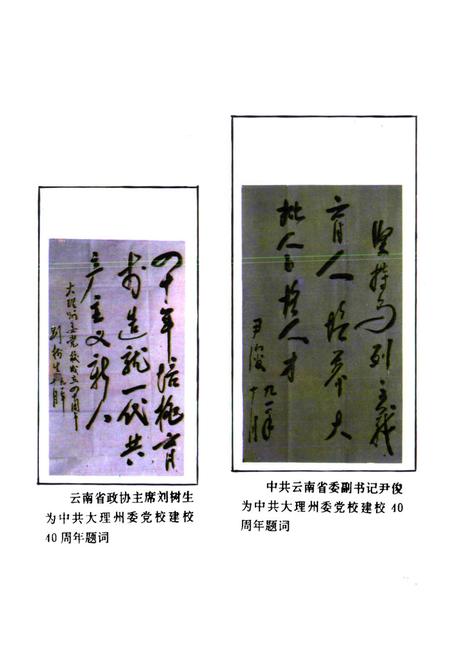 四十年培桃育
李造就一代共
产主义新人
大理州委党校成立四十周年
刘树生
云南省政协主席刘树生
为中共大理州委党校建校
40周年题词
坚持马列主义
育人 培养大
批人 人才
尹俊
九一年
十月
中共云南省委副书记尹俊
为中共大理州委党校建校 40
周年题词